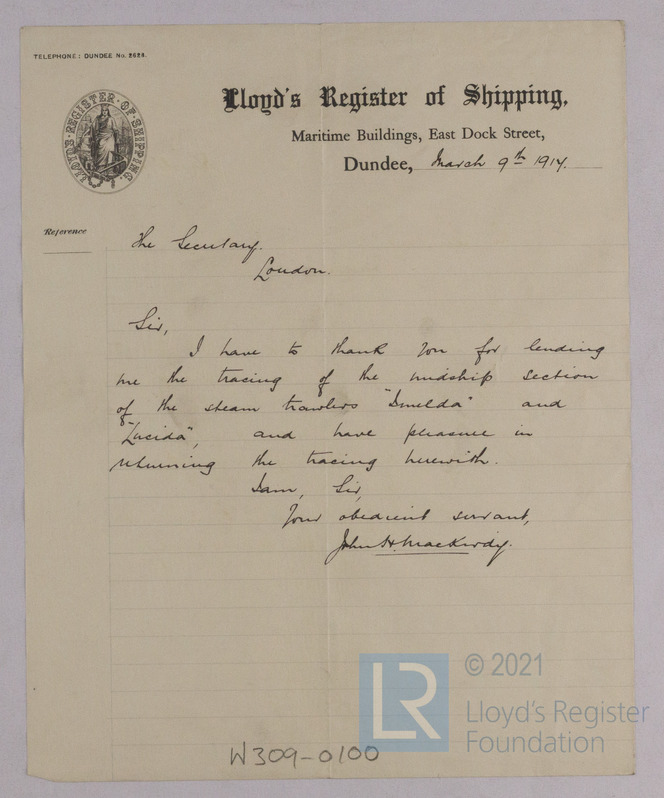 TELEPHONE: DUNDEE No. 2628.
LLOYDS REGISTER OF SHIPPING.
Lloyd's Register of Shipping,
Maritime Buildings, East Dock Street,
Dundee, March 9th 1914.
Reference
The Secretary.
London.
Sir,
I have to thank you for lending
me the tracing of the midship section
of the steam trawlers "Imelda" and
"Lucida", and have pleasure in
returning the tracing herewith.
I am, Sir,
Your obedient servant,
John H. MacKirdy.
W309-0100
LR
© 2021
Lloyd's Register
Foundation